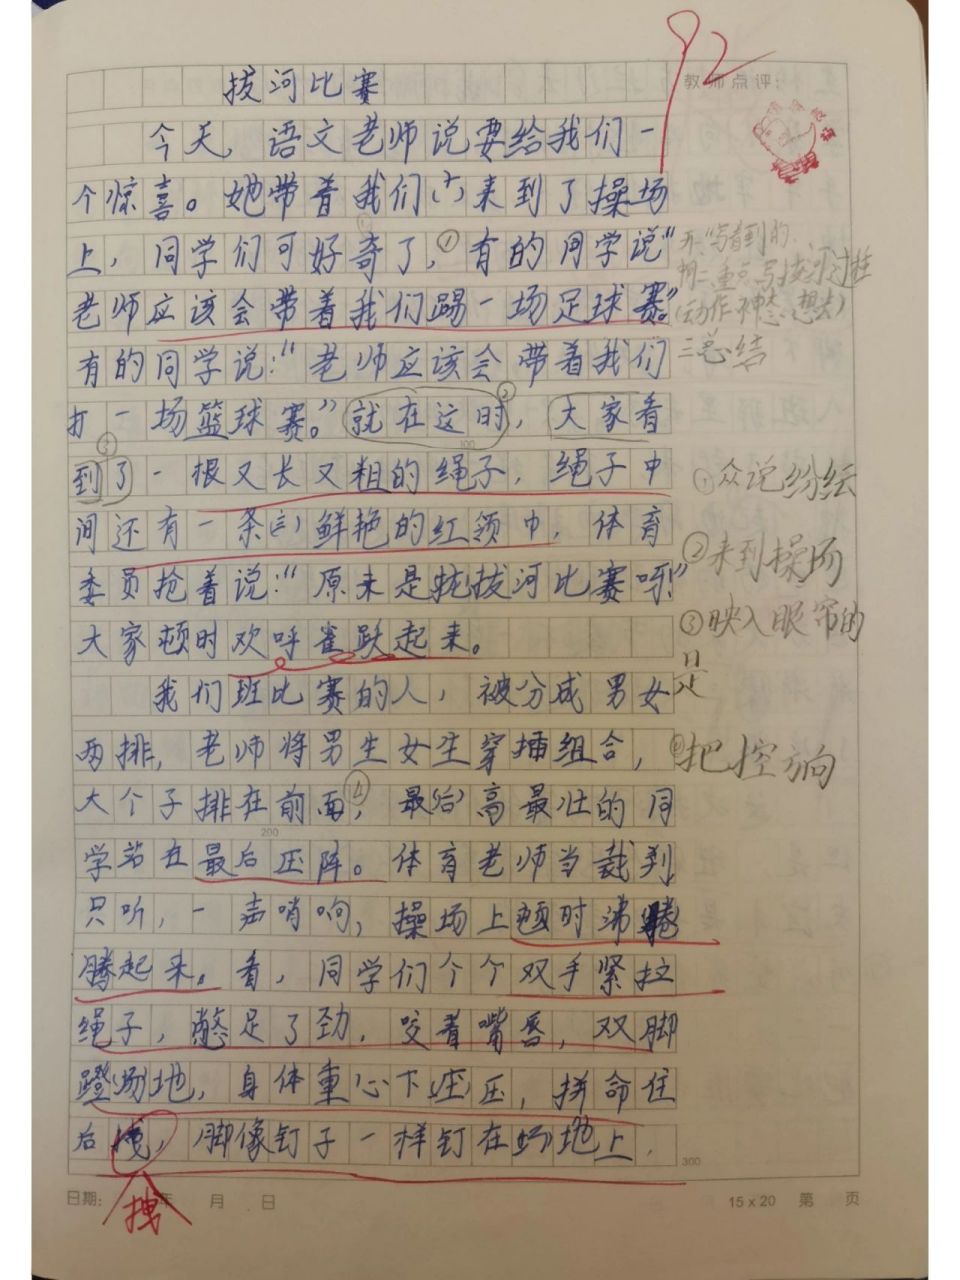 92
拔河比赛
教师点评:
今天,语文老师说要给我们一
个惊喜。她带着我们(+)来到了操场
上,同学们可好奇了,①有的同学说“
老师应该会带着我们踢一场足球赛。”
有的同学说:“老师应该会带着我们
打一场篮球赛。”就在这时②,大家看
100
到③了一根又长又粗的绳子,绳子中
间还有一条(三)鲜艳的红领巾,体育
委员抢着说:“原来是拔拔河比赛呀!”
大家顿时欢呼雀跃起来。
我们班比赛的人,被分成男女
两排,老师将男生女生穿插组合,
大个子排在前面④,最(后)高最壮的同
200
学站在最后压阵。体育老师当裁判
只听,一声哨响,操场上顿时沸
腾起来。看,同学们个个双手紧拉
绳子,憋足了劲,咬着嘴唇,双脚
蹬(场)地,身体重心下(座)压,拼命往
后,脚像钉子一样钉在场地上,
300
拽
开:写看到的
二重点写拔河过程
(动作神态、想法)
三总结
①众说纷纭
②来到操场
③映入眼帘的
是
④把控方向
日期: 年 月 日
15 x 20 第 页